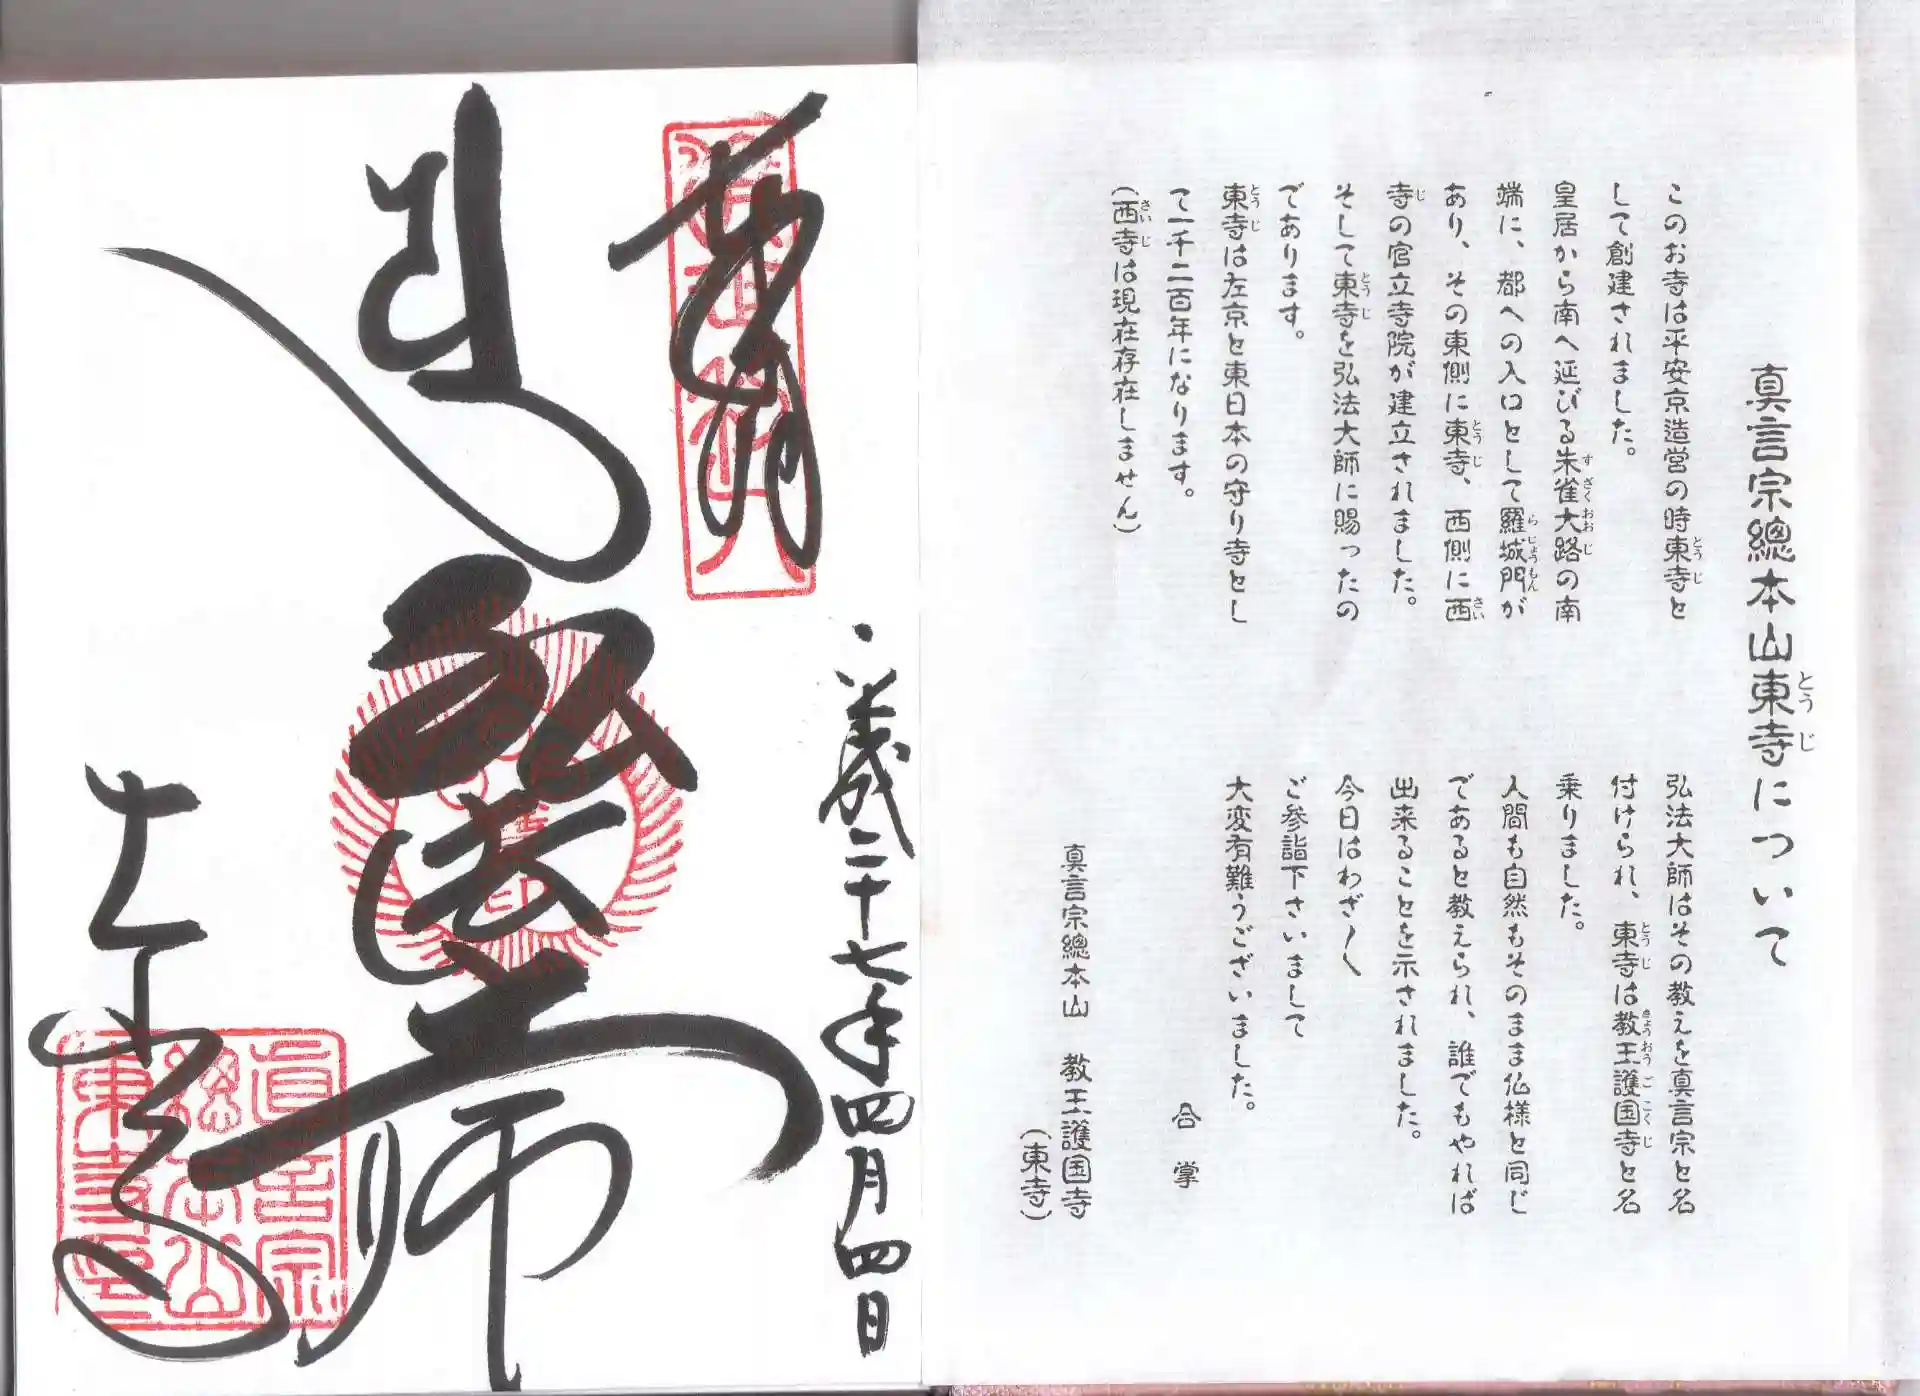 真言宗總本山東寺について
このお寺は平安京造営の時東寺と
して創建されました。
皇居から南へ延びる朱雀大路の南
端に、都への入口として羅城門が
あり、その東側に東寺、西側に西
寺の官立寺院が建立されました。
そして東寺を弘法大師に賜ったの
であります。
東寺は左京と東日本の守り寺とし
て一千二百年になります。
(西寺は現在存在しません)
弘法大師はその教えを真言宗と名
付けられ、東寺は教王護国寺と名
乗りました。
人間も自然もそのまま仏様と同じ
であると教えられ、誰でもやれば
出来ることを示されました。
今日はわざ〱
ご参詣下さいまして
大変有難うございました。
合掌
真言宗總本山 教王護国寺
(東寺)
平成二十七年四月四日
奉拝
弘法大師
東寺
真言宗
總本山
東寺印